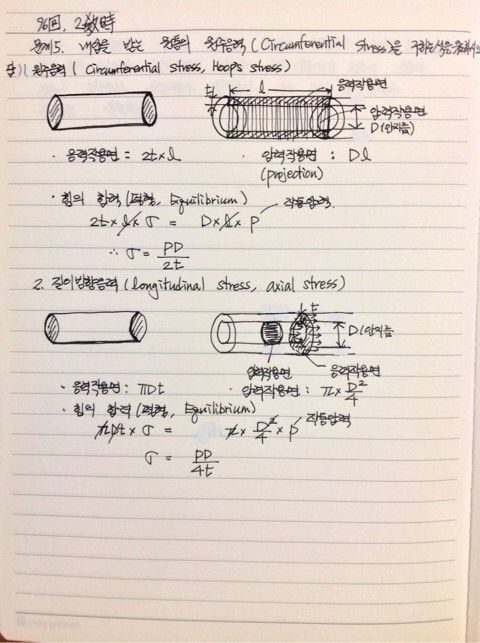 96回, 2教時
문제5. 내압을 받는 원통의 원주응력 (Circumferential Stress)을 구하는 식을
답) 1. 원주응력 ( Circumferential stress, Hoop's stress)
응력작용면
t
l
압력작용면
D(안지름)
· 응력작용면 = 2t×l
· 압력작용면 : Dl
(projection)
· 힘의 합력 (평형, Equilibrium)
2t×l×σ = D×l×P
작동압력
∴ σ = PD/2t
2. 길이방향응력 (longitudinal stress, axial stress)
t
D(안지름
압력작용면
응력작용면
· 응력작용면: πDt
· 압력작용면: π×D²/4
· 힘의 합력 (평형, Equilibrium)
πDt×σ = π×D²/4×P
작동압력
σ = PD/4t